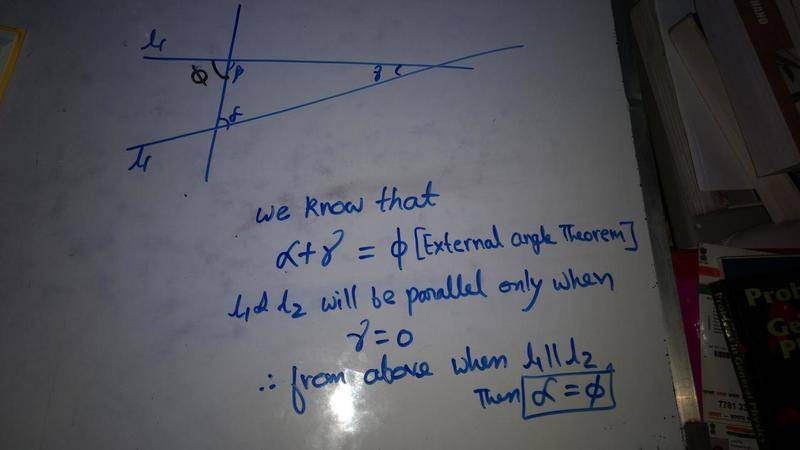 l1
ϕ
β
γ
α
l1
we know that
α+γ = ϕ [External angle Theorem]
l1 & l2 will be parallel only when
γ=0
∴ from above when l1 || l2,
Then α=ϕ
HAND
Prob
Ge
P
7781 33